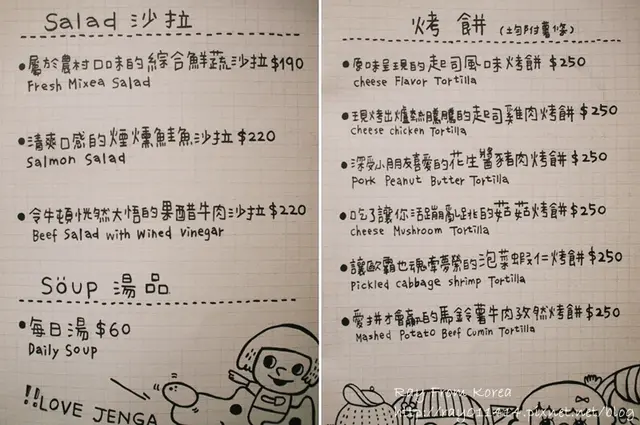 Salad 沙拉
屬於農村口味的綜合鮮蔬沙拉 $190
Fresh Mixea Salad
清爽口感的煙燻鮭魚沙拉 $220
Salmon Salad
令牛頓恍然大悟的果醋牛肉沙拉 $220
Beef Salad with Wined Vinegar
Söup 湯品
每日湯 $60
Daily Soup
!!LOVE JENGA
烤餅 (均附薯條)
原味呈現的起司風味烤餅 $250
cheese Flavor Tortilla
現烤出爐熱騰騰的起司雞肉烤餅 $250
cheese chicken Tortilla
深受小朋友喜愛的花生醬豬肉烤餅 $250
Pork Peanut Butter Tortilla
吃了讓你活蹦亂跳的菇菇烤餅 $250
cheese Mushroom Tortilla
讓歐霸也魂牽夢縈的泡菜蝦仁烤餅 $250
Pickled cabbage shrimp Tortilla
愛拼才會贏的馬鈴薯牛肉孜然烤餅 $250
Mashed Potato Beef Cumin Tortilla
Ray From Korea
http://ray011414.pixnet.net/blog